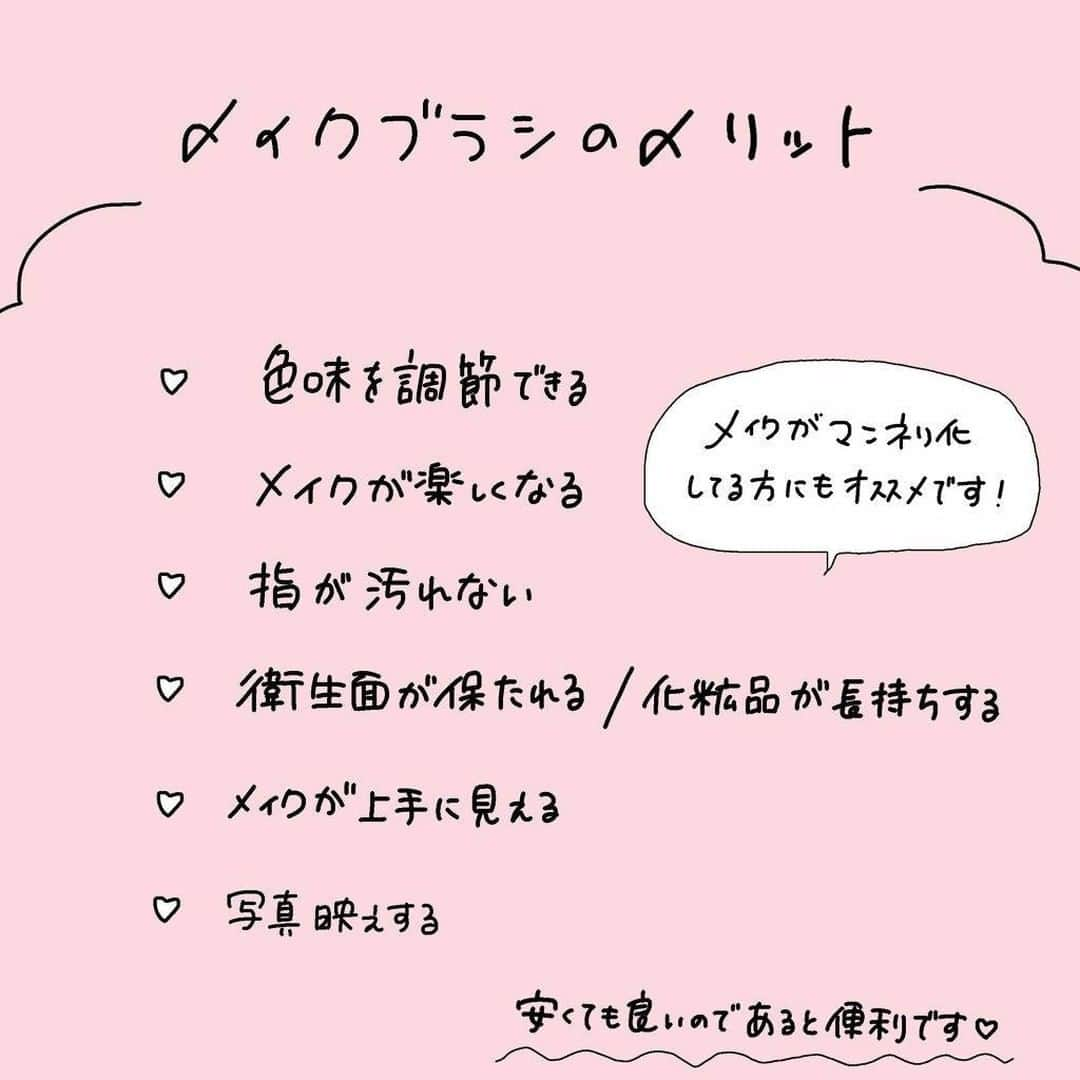 メイクブラシのメリット
♡ 色味を調節できる
メイクがマンネリ化
してる方にもオススメです!
♡ メイクが楽しくなる
♡ 指が汚れない
♡ 衛生面が保たれる / 化粧品が長持ちする
♡ メイクが上手に見える
♡ 写真映えする
安くても良いのであると便利です♡